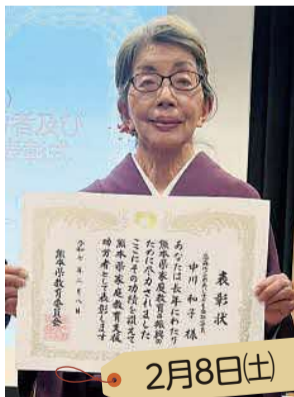 者及び
表彰式
表彰状
中川 和子 様
あなたは長年にわたり
熊本県家庭教育の振興の
ために尽力されました
ここにその功績を讃えて
熊本県家庭教育支援
功労者として表彰します
令和七年二月八日
熊本県教育委員会
2月8日(土)